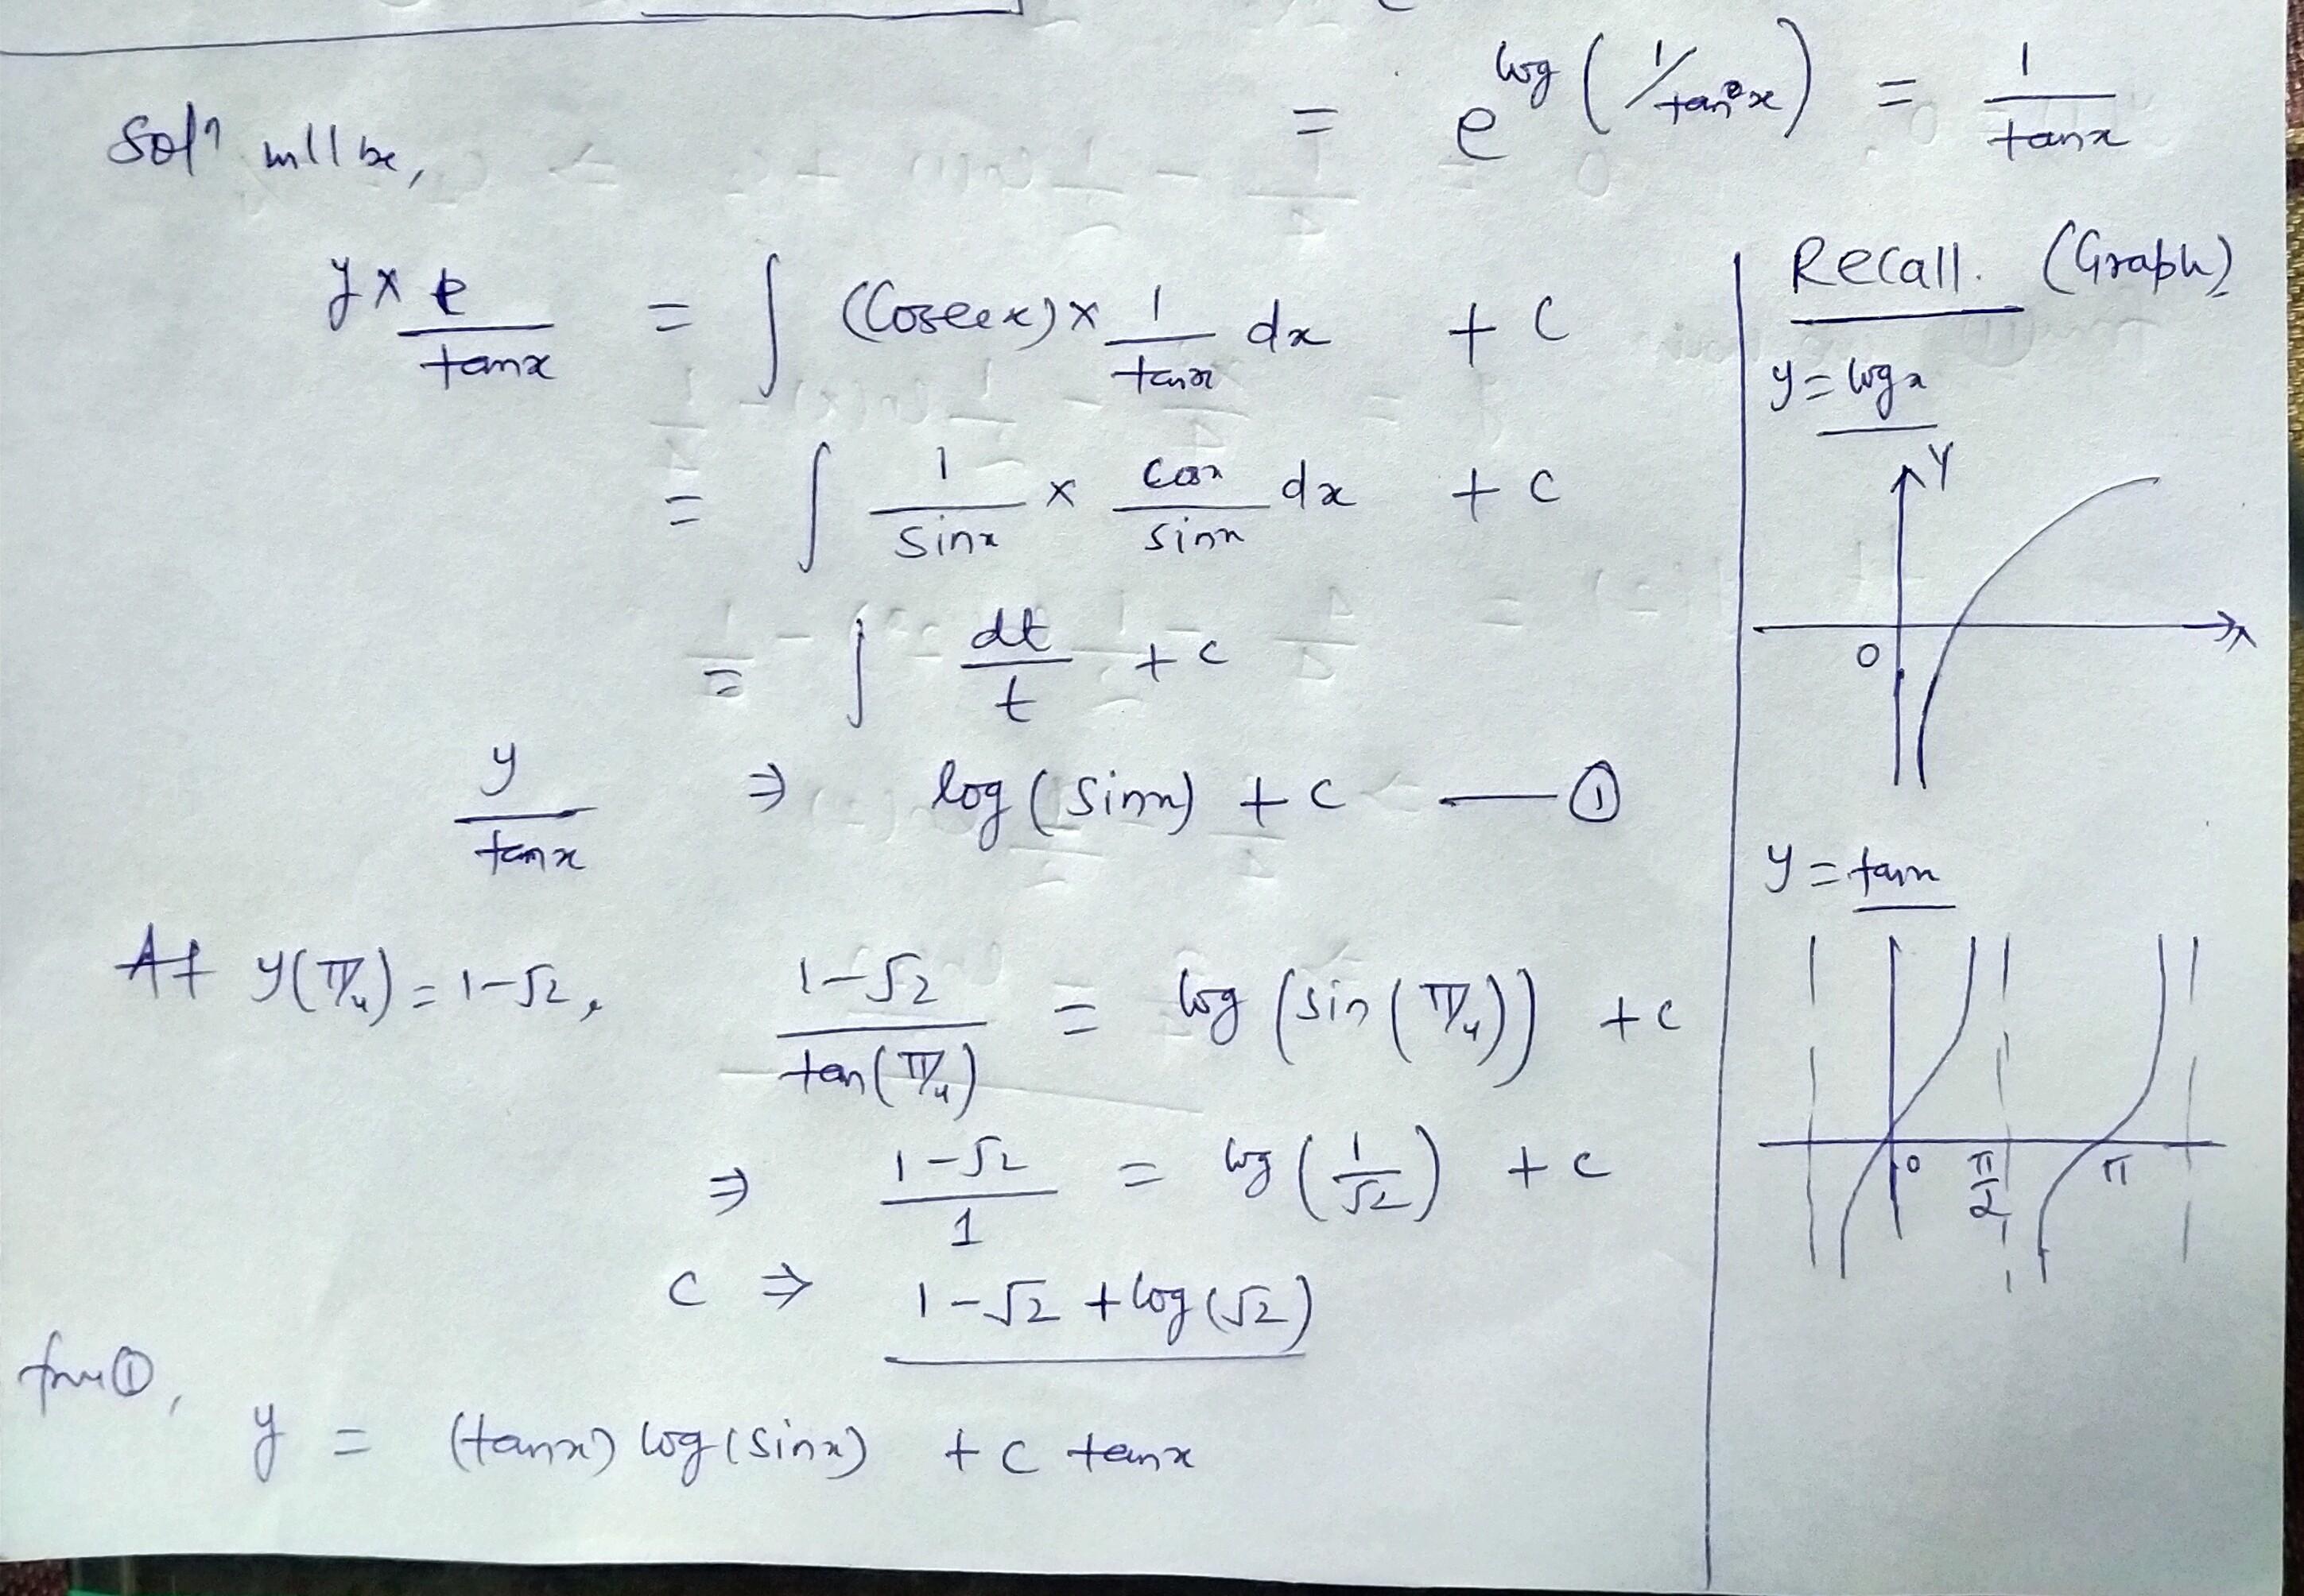 = e^{log (1/tan x)} = 1/tanx
Solⁿ will be,
y × e/tanx = ∫ (Cosecx) × 1/tanx dx + C
= ∫ 1/Sinx × cosx/sinx dx + C
= ∫ dt/t + C
y/tanx ⇒ log (Sinx) + C — ①
At y(π/4) = 1-√2, (1-√2)/tan(π/4) = log (sin (π/4)) + c
⇒ (1-√2)/1 = log (1/√2) + c
C ⇒ 1-√2 + log(√2)
from ①,
y = (tanx) log(Sinx) + C tanx
Recall. (Graph)
y = logx
Y
O
X
y = tanx
O π/2 π